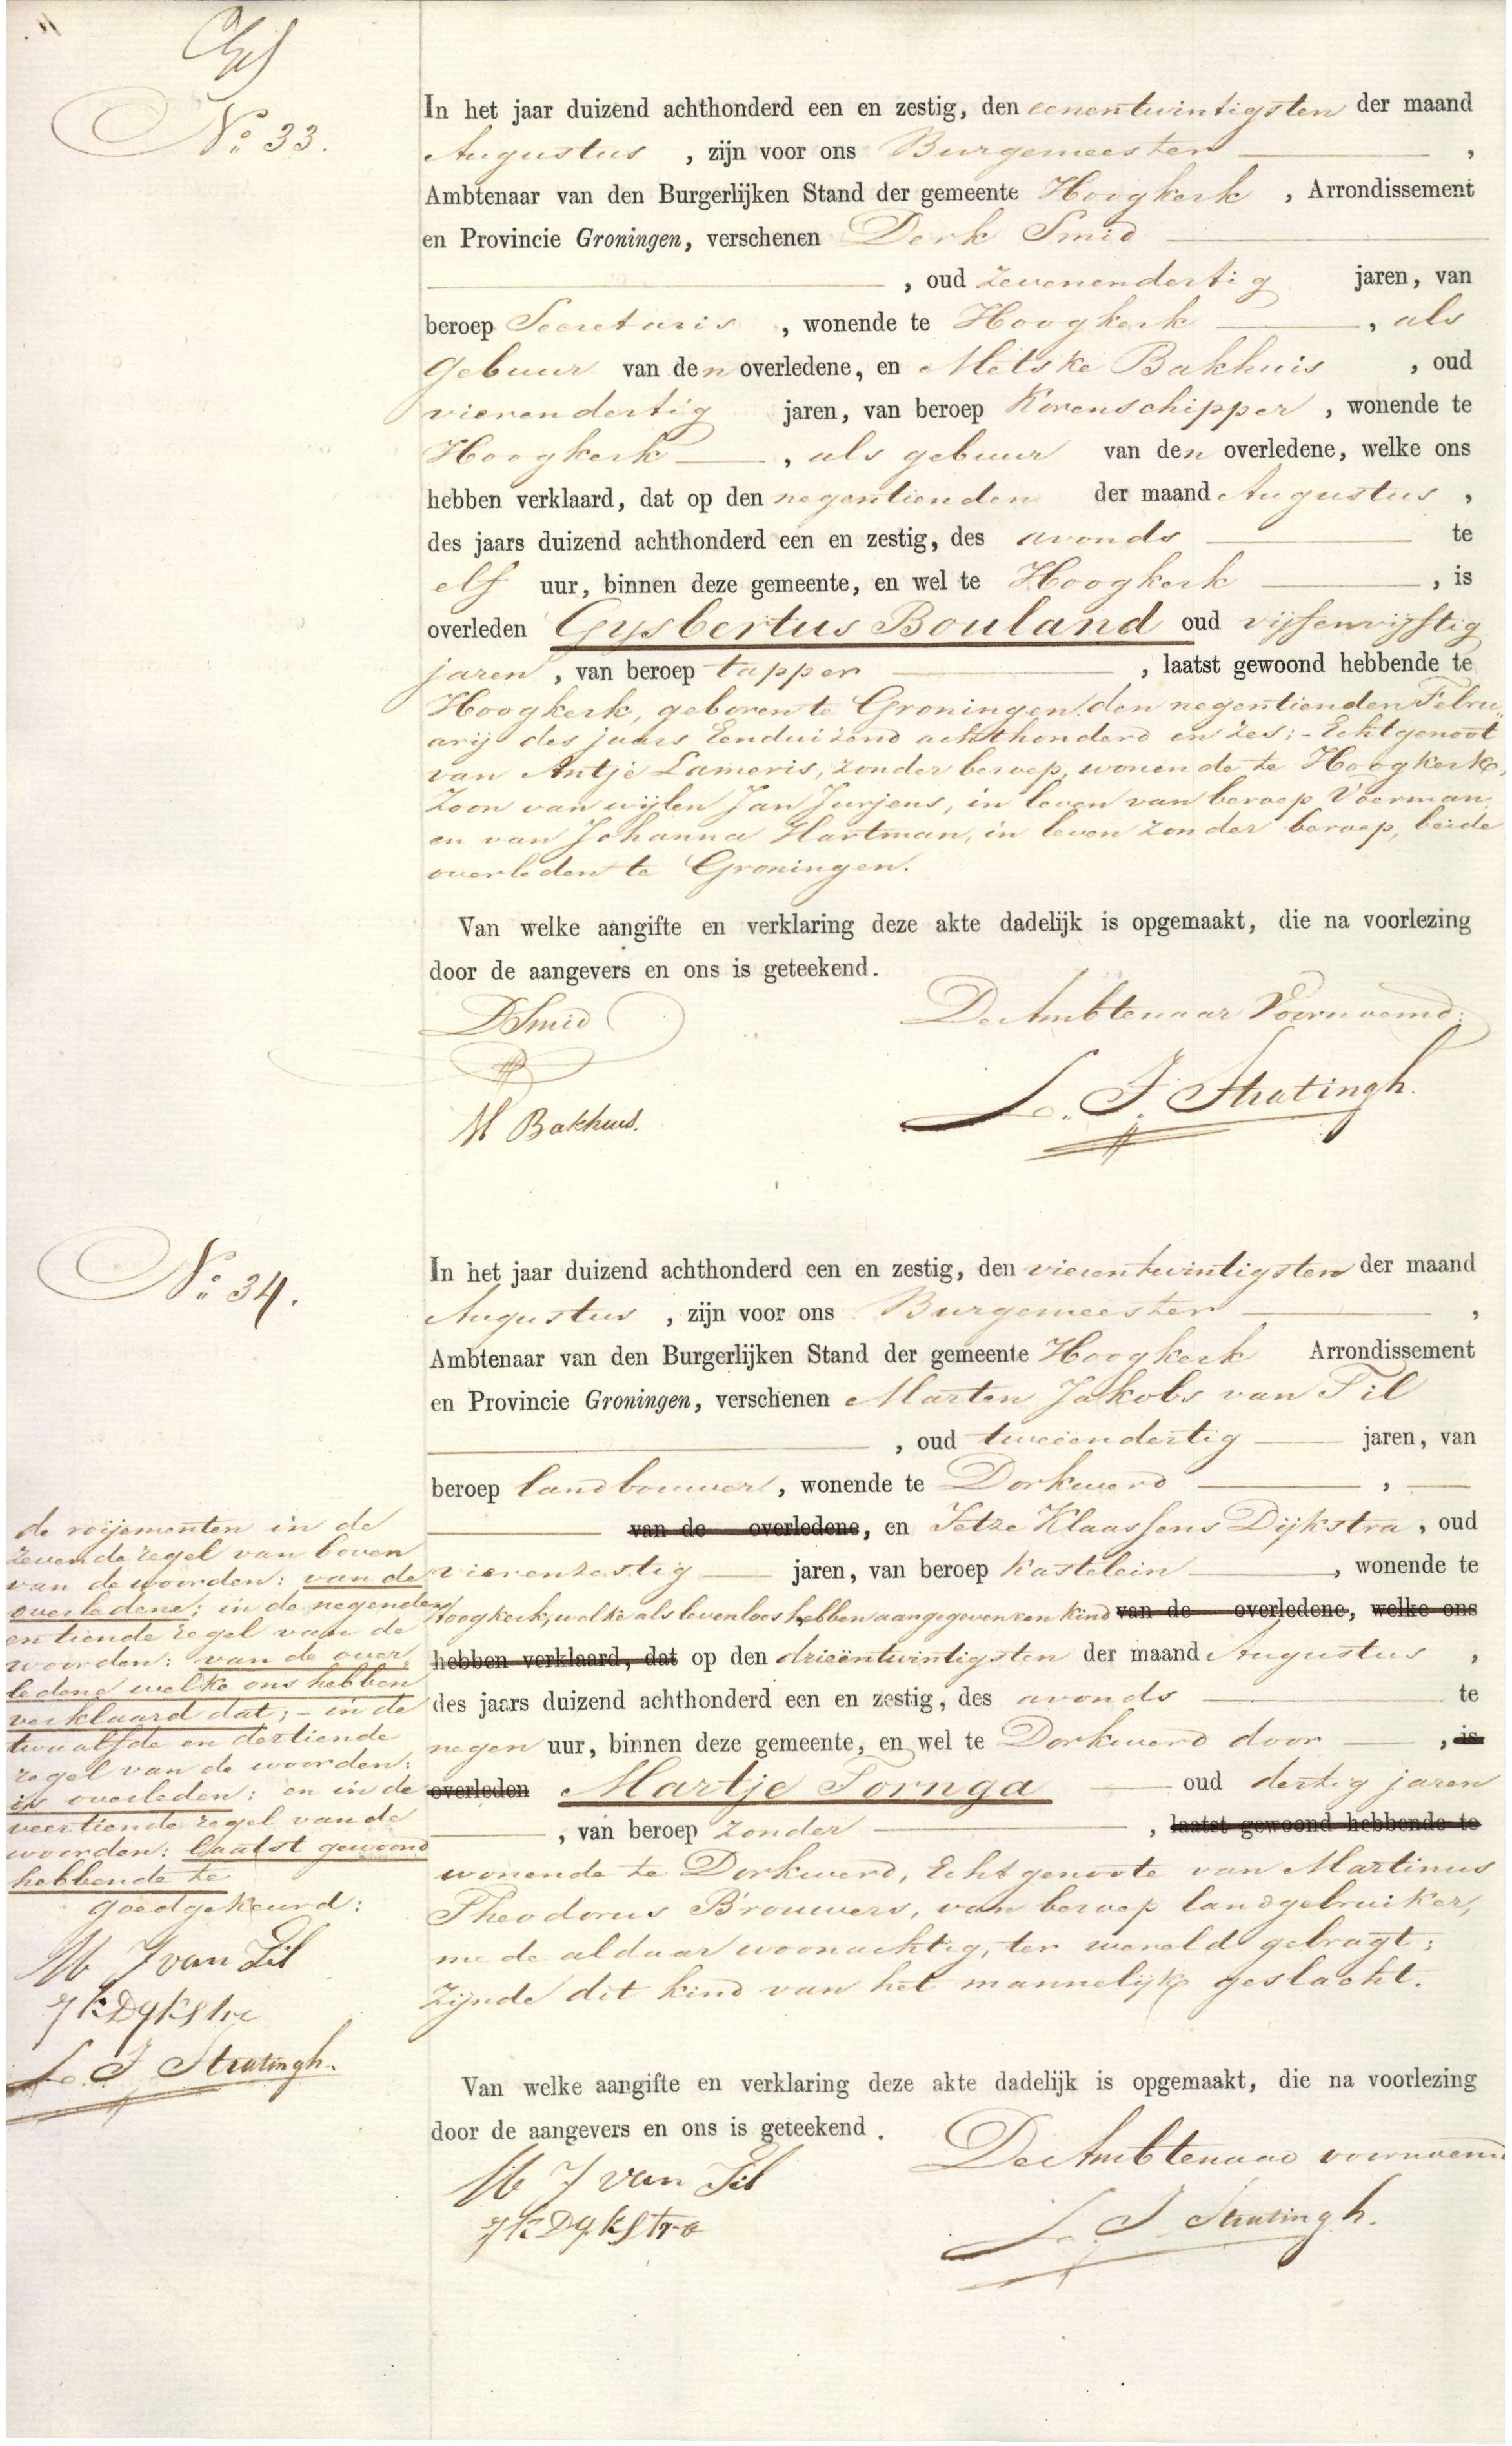 No. 33.
In het jaar duizend achthonderd een en zestig, den eenentwintigsten der maand
Augustus , zijn voor ons Burgemeester ,
Ambtenaar van den Burgerlijken Stand der gemeente Hoogkerk , Arrondissement
en Provincie Groningen, verschenen Derk Smid
, oud zevenendertig jaren, van
beroep Secretaris , wonende te Hoogkerk , als
gebuur van den overledene, en Metske Bakhuis , oud
vierendertig jaren, van beroep Korenschipper , wonende te
Hoogkerk , als gebuur van den overledene, welke ons
hebben verklaard, dat op den negentienden der maand Augustus ,
des jaars duizend achthonderd een en zestig, des avonds te
elf uur, binnen deze gemeente, en wel te Hoogkerk , is
overleden Gysbertus Bouland oud vijfenvijftig
jaren , van beroep tapper , laatst gewoond hebbende te
Hoogkerk, geboren te Groningen den negentienden Febru„
arij des jaars Eenduizend achthonderd en zes; - Echtgenoot
van Antje Lameris, zonder beroep, wonende te Hoogkerk,
Zoon van wijlen Jan Jurjens, in leven van beroep Voerman,
en van Johanna Hartman, in leven zonder beroep, beide
overleden te Groningen.
Van welke aangifte en verklaring deze akte dadelijk is opgemaakt, die na voorlezing
door de aangevers en ons is geteekend.
De Ambtenaar Voornoemd:
DSmid
L. J. Stratingh.
M Bakhuis.
No. 34.
In het jaar duizend achthonderd een en zestig, den vierentwintigsten der maand
Augustus , zijn voor ons Burgemeester ,
Ambtenaar van den Burgerlijken Stand der gemeente Hoogkerk Arrondissement
en Provincie Groningen, verschenen Marten Jakobs van Til
, oud tweeëndertig jaren, van
beroep landbouwer , wonende te Dorkwerd ,
van de overledene, en Jetze Klaassens Dijkstra , oud
vierenzestig jaren, van beroep Kastelein , wonende te
Hoogkerk, welke als levenloos hebben aangegeven een kind van de overledene, welke ons
hebben verklaard, dat op den drieëntwintigsten der maand Augustus ,
des jaars duizend achthonderd een en zestig, des avonds te
negen uur, binnen deze gemeente, en wel te Dorkwerd door , is
overleden Martje Tornga oud dertig jaren
, van beroep zonder , laatst gewoond hebbende te
wonende te Dorkwerd, Echtgenoote van Martinus
Theodorus Brouwers, van beroep landgebruiker,
mede aldaar woonachtig, ter wereld gebragt;
zijnde dit kind van het mannelijk geslacht.
Van welke aangifte en verklaring deze akte dadelijk is opgemaakt, die na voorlezing
door de aangevers en ons is geteekend.
De Ambtenaar voornoemd
M J van Til
JKDykstra
L J Stratingh.
de roijementen in de
zevende regel van boven
van de woorden: van de
overledene; in de negende
en tiende regel van de
woorden: van de over„
ledene welke ons hebben
verklaard dat; - in de
twaalfde en dertiende
regel van de woorden:
is overleden; en in de
veertiende regel van de
woorden: laatst gewoond
hebbende te
goedgekeurd:
M J van Til
JKDykstra
L. J Stratingh.